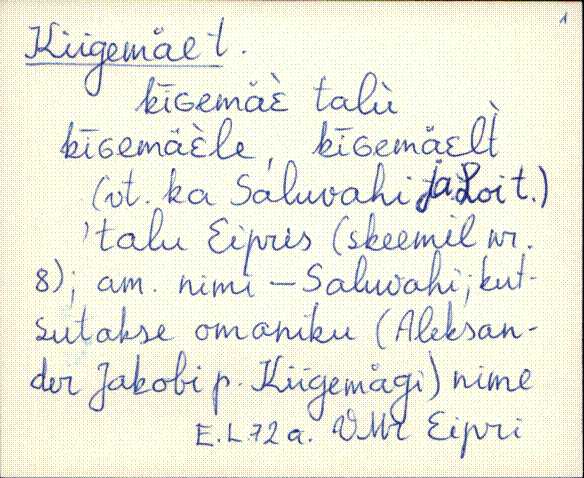 1
Kiigemäe t.
kīGemäè talù
kīGemäèle, kīGemäèlt̀
(vt. ka Saluvahi ja Loi t.)
'talu Eipris (skeemil nr.
8); am. nimi – Saluvahi; kut-
sutakse omaniku (Aleksan-
der Jakobi p. Kiigemägi) nime
E.L.72 a. VMr Eipri